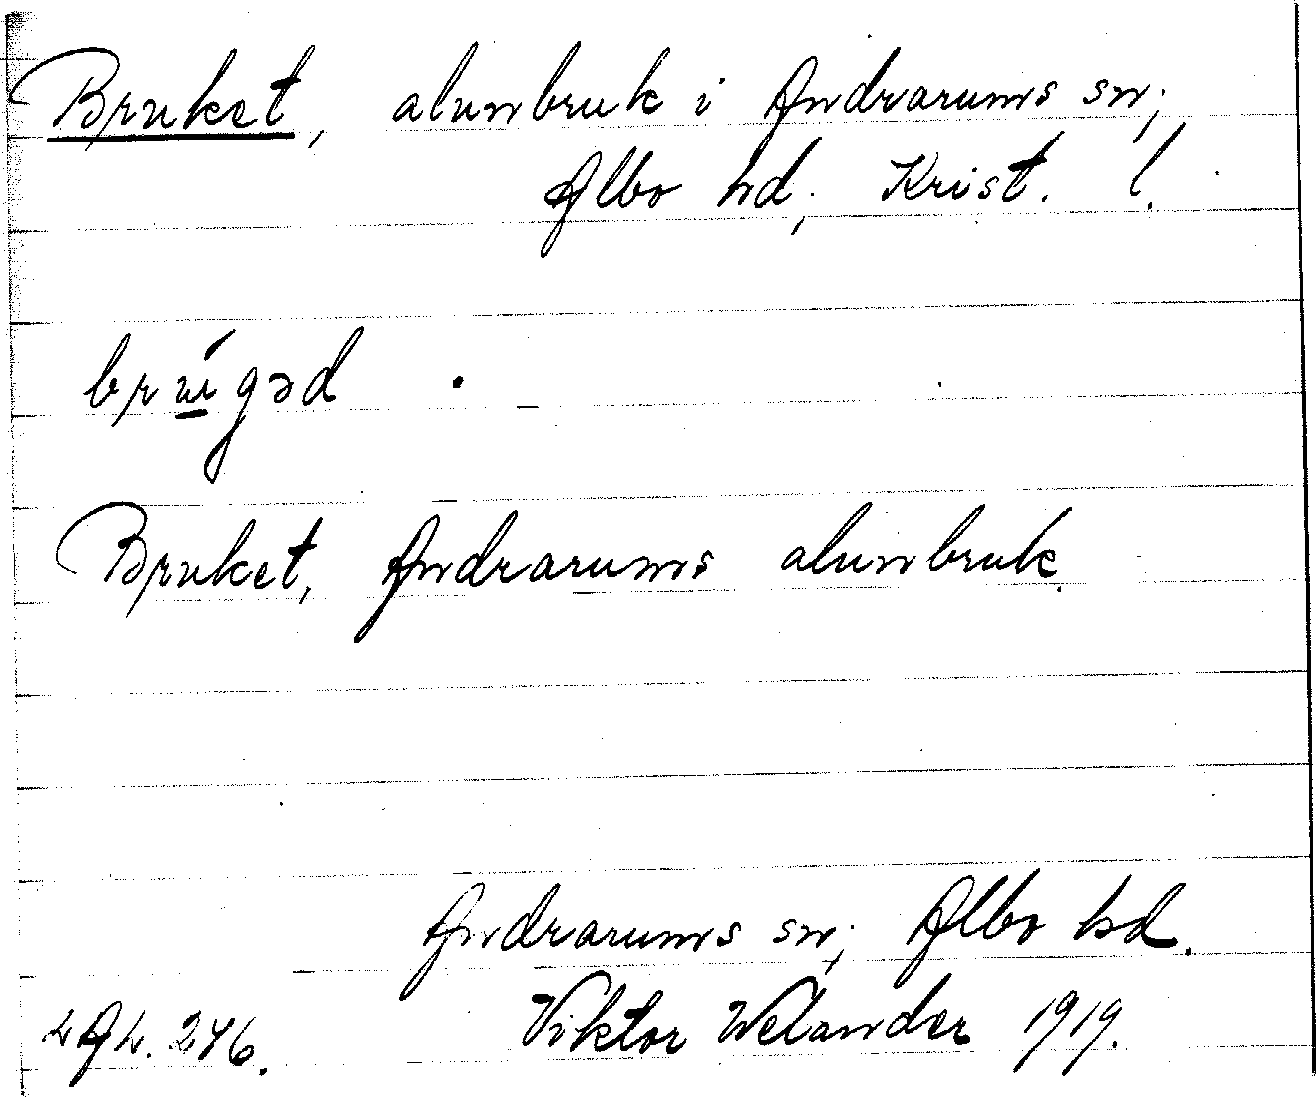 Bruket, alunbruk i Andrarums sn;
Albo hd; Krist. l.
brúgəd
Bruket, Andrarums alunbruk.
Andrarums sn; Albo hd.
LAL. 246. Viktor Welander 1919.